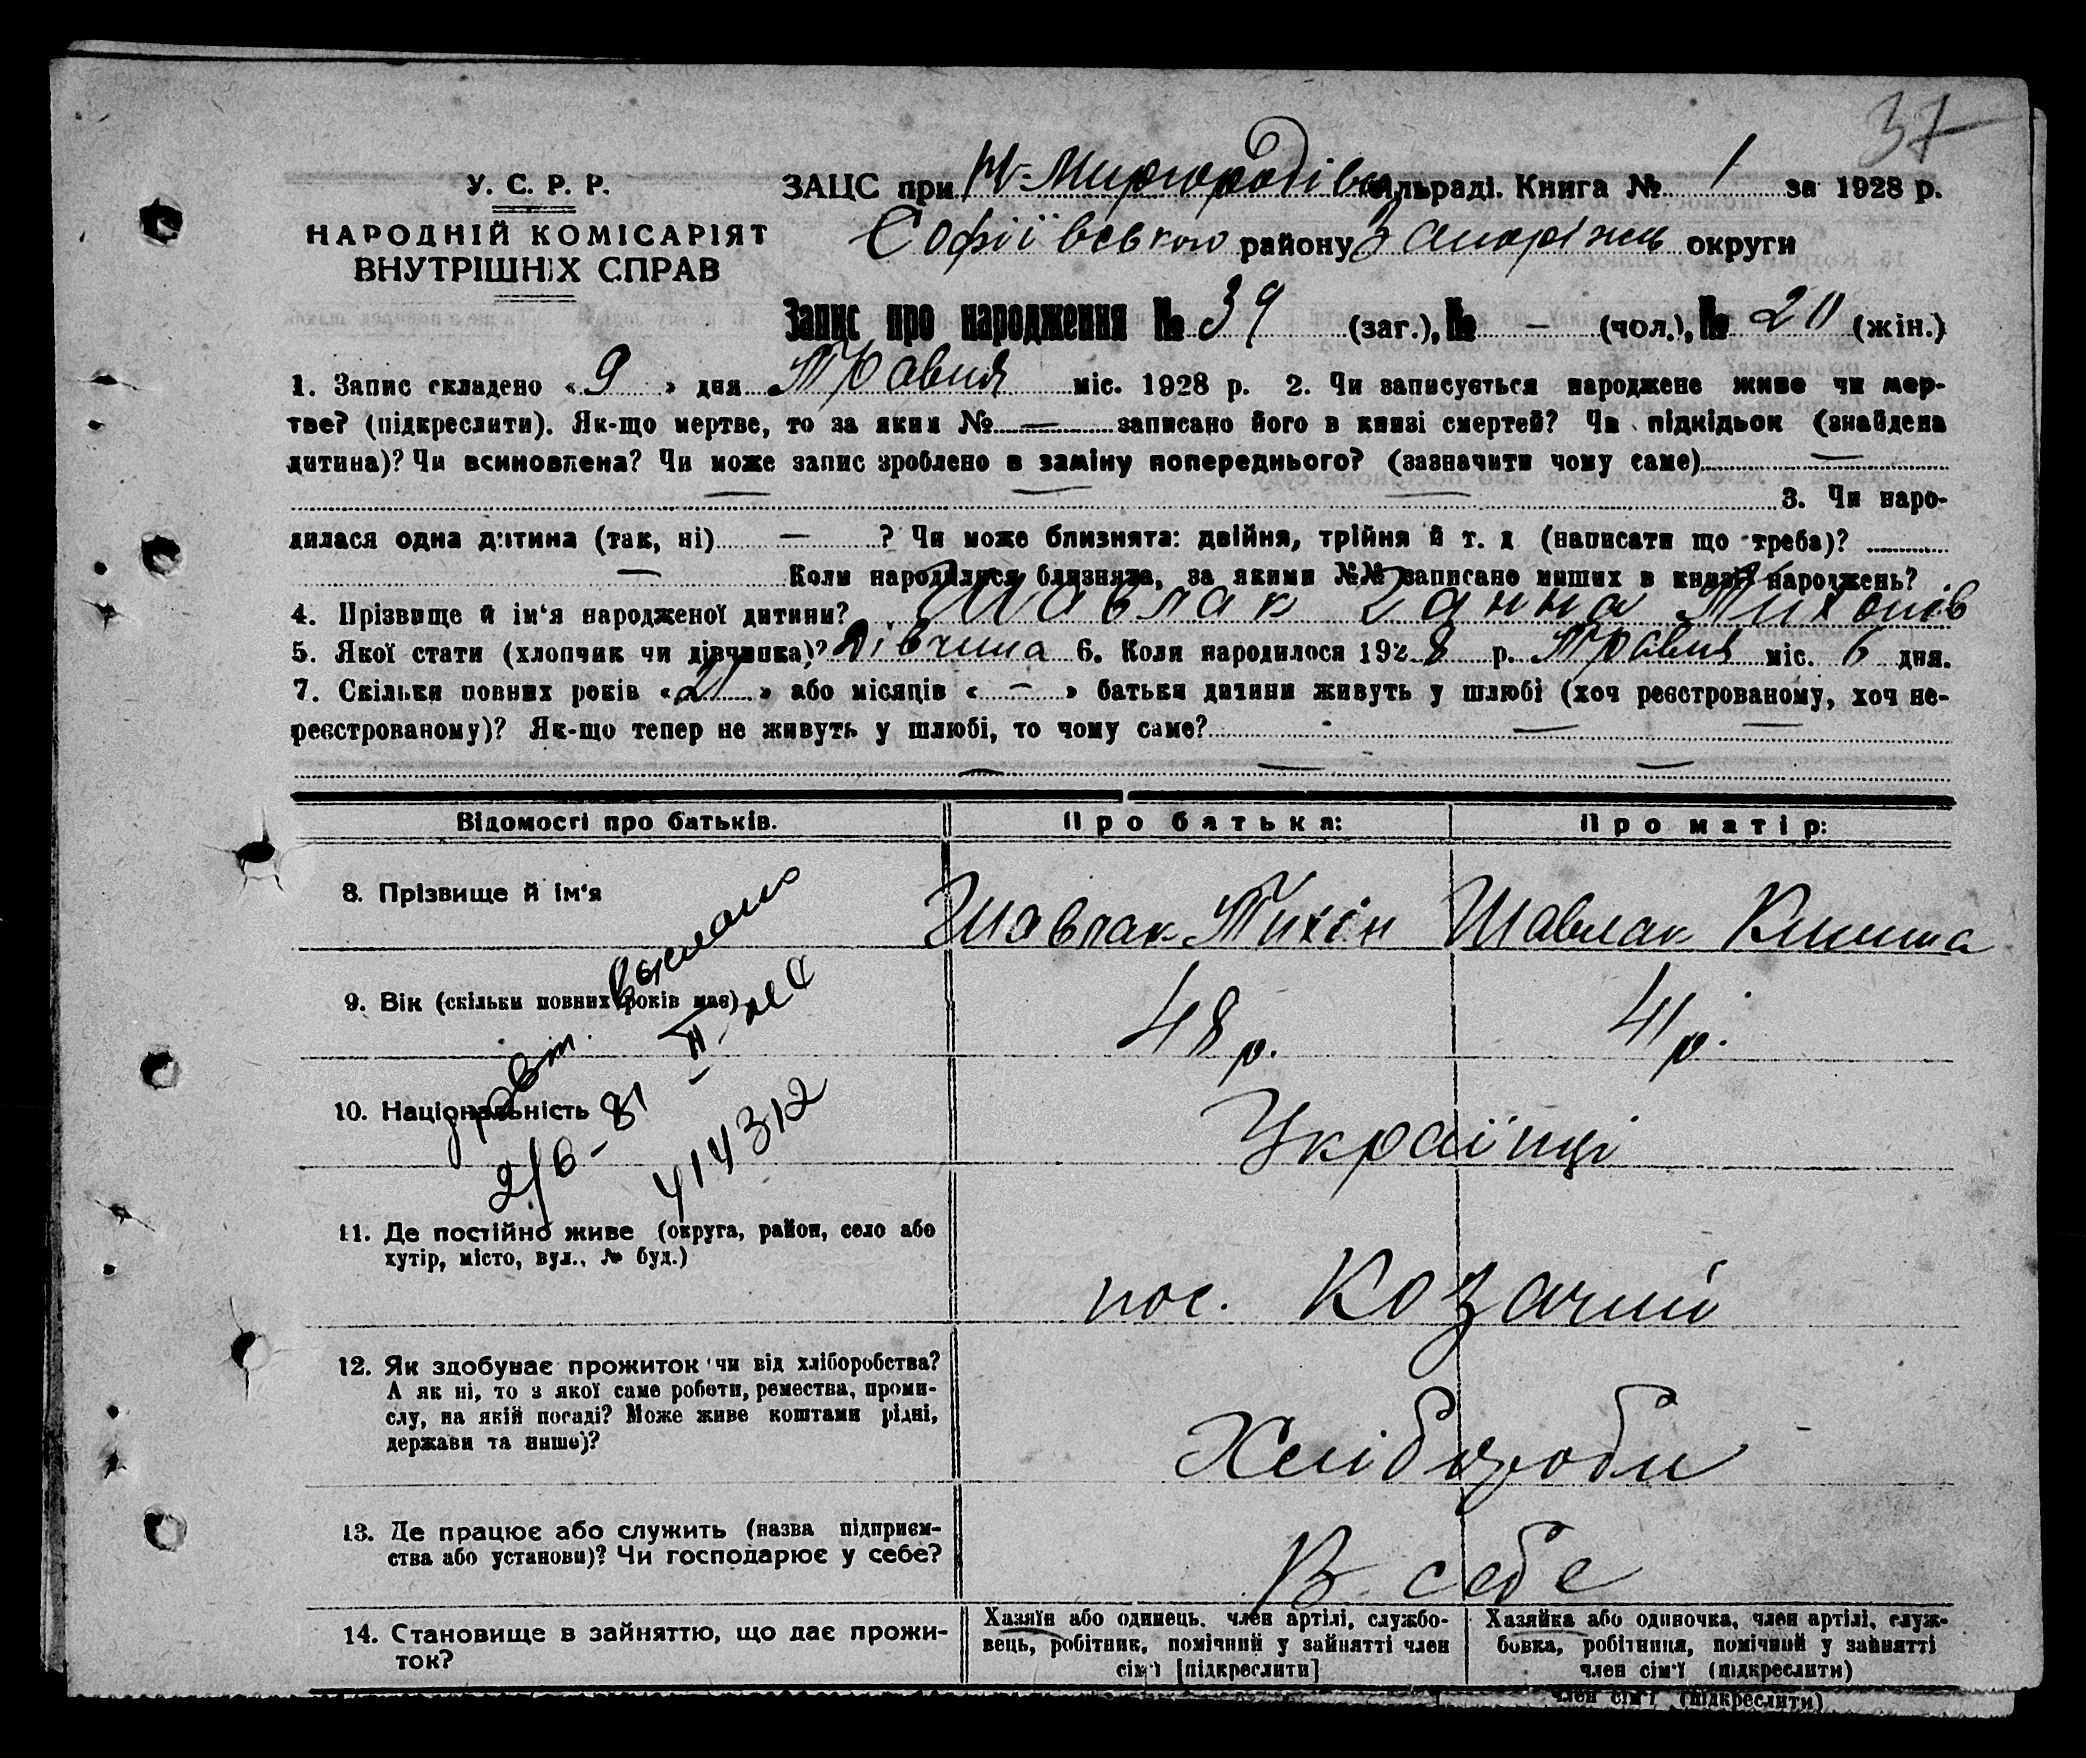 37
У. С. Р. Р.
НАРОДНІЙ КОМІСАРІЯТ
ВНУТРІШНІХ СПРАВ
ЗАЦС при Миргородівс сільраді. Книга № 1 за 1928 р.
Софіївського району Запоріжс округи
Запис про народження № 39 (заг.), № — (чол.), № 20 (жін.)
1. Запис складено «9» дня Травня міс. 1928 р. 2. Чи записується народжене живе чи мер-
тве? (підкреслити). Як-що мертве, то за яким № — записано його в книзі смертей? Чи підкідьок (знайдена
дитина)? Чи всиновлена? Чи може запис зроблено в заміну попереднього? (зазначити чому саме) —
— — — 3. Чи наро-
дилася одна дитина (так, ні) — ? Чи може близнята: двійня, трійня й т. д (написати що треба)?
— Коли народилися близнята, за якими №№ записано инших в книзі народжень?
4. Прізвище й ім‘я народженої дитини? Шавлак Ганна Тихонів
5. Якої статі (хлопчик чи дівчинка)? Дівчина 6. Коли народилося 1928 р. Травня міс. 6 дня.
7. Скільки повних років «21» або місяців «—» батьки дитини живуть у шлюбі (хоч реєстрованому, хоч не-
реєстрованому)? Як-що тепер не живуть у шлюбі, то чому саме? — —
— — —
Відомості про батьків. Про батька: Про матір:
8. Прізвище й ім‘я Шавлак Тихін Шавлак
выслано
9. Вік (скільки повних років має) 48 р. 41 р.
10. Національність Українці
2/6-81
414312
11. Де постійно живе (округа, район, село або
хутір, місто, вул., № буд.)
пос. Козачий
12. Як здобуває прожиток чи від хліборобства?
А як ні, то з якої саме роботи, ремества, проми-
слу, на якій посаді? Може живе коштами рідні,
держави та инше)?
Хлібороби
13. Де працює або служить (назва підприєм-
ства або установи)? Чи господарює у себе?
В себе
14. Становище в зайняттю, що дає прожи-
ток?
Хазяїн або одинець, член артілі, службо-
вець, робітник, помічний у зайнятті член
сім‘ї [підкреслити]
Хазяйка або одиночка, член артілі, служ-
бовка, робітниця, помічний у зайнятті
член сім‘ї (підкреслити)
член сім‘ї (підкреслити)